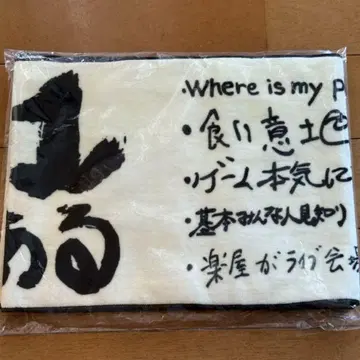 る
・Where is my P
・食い意地
・リゲーム本気に
・基本みんな人見知り
・楽屋がライブ会場